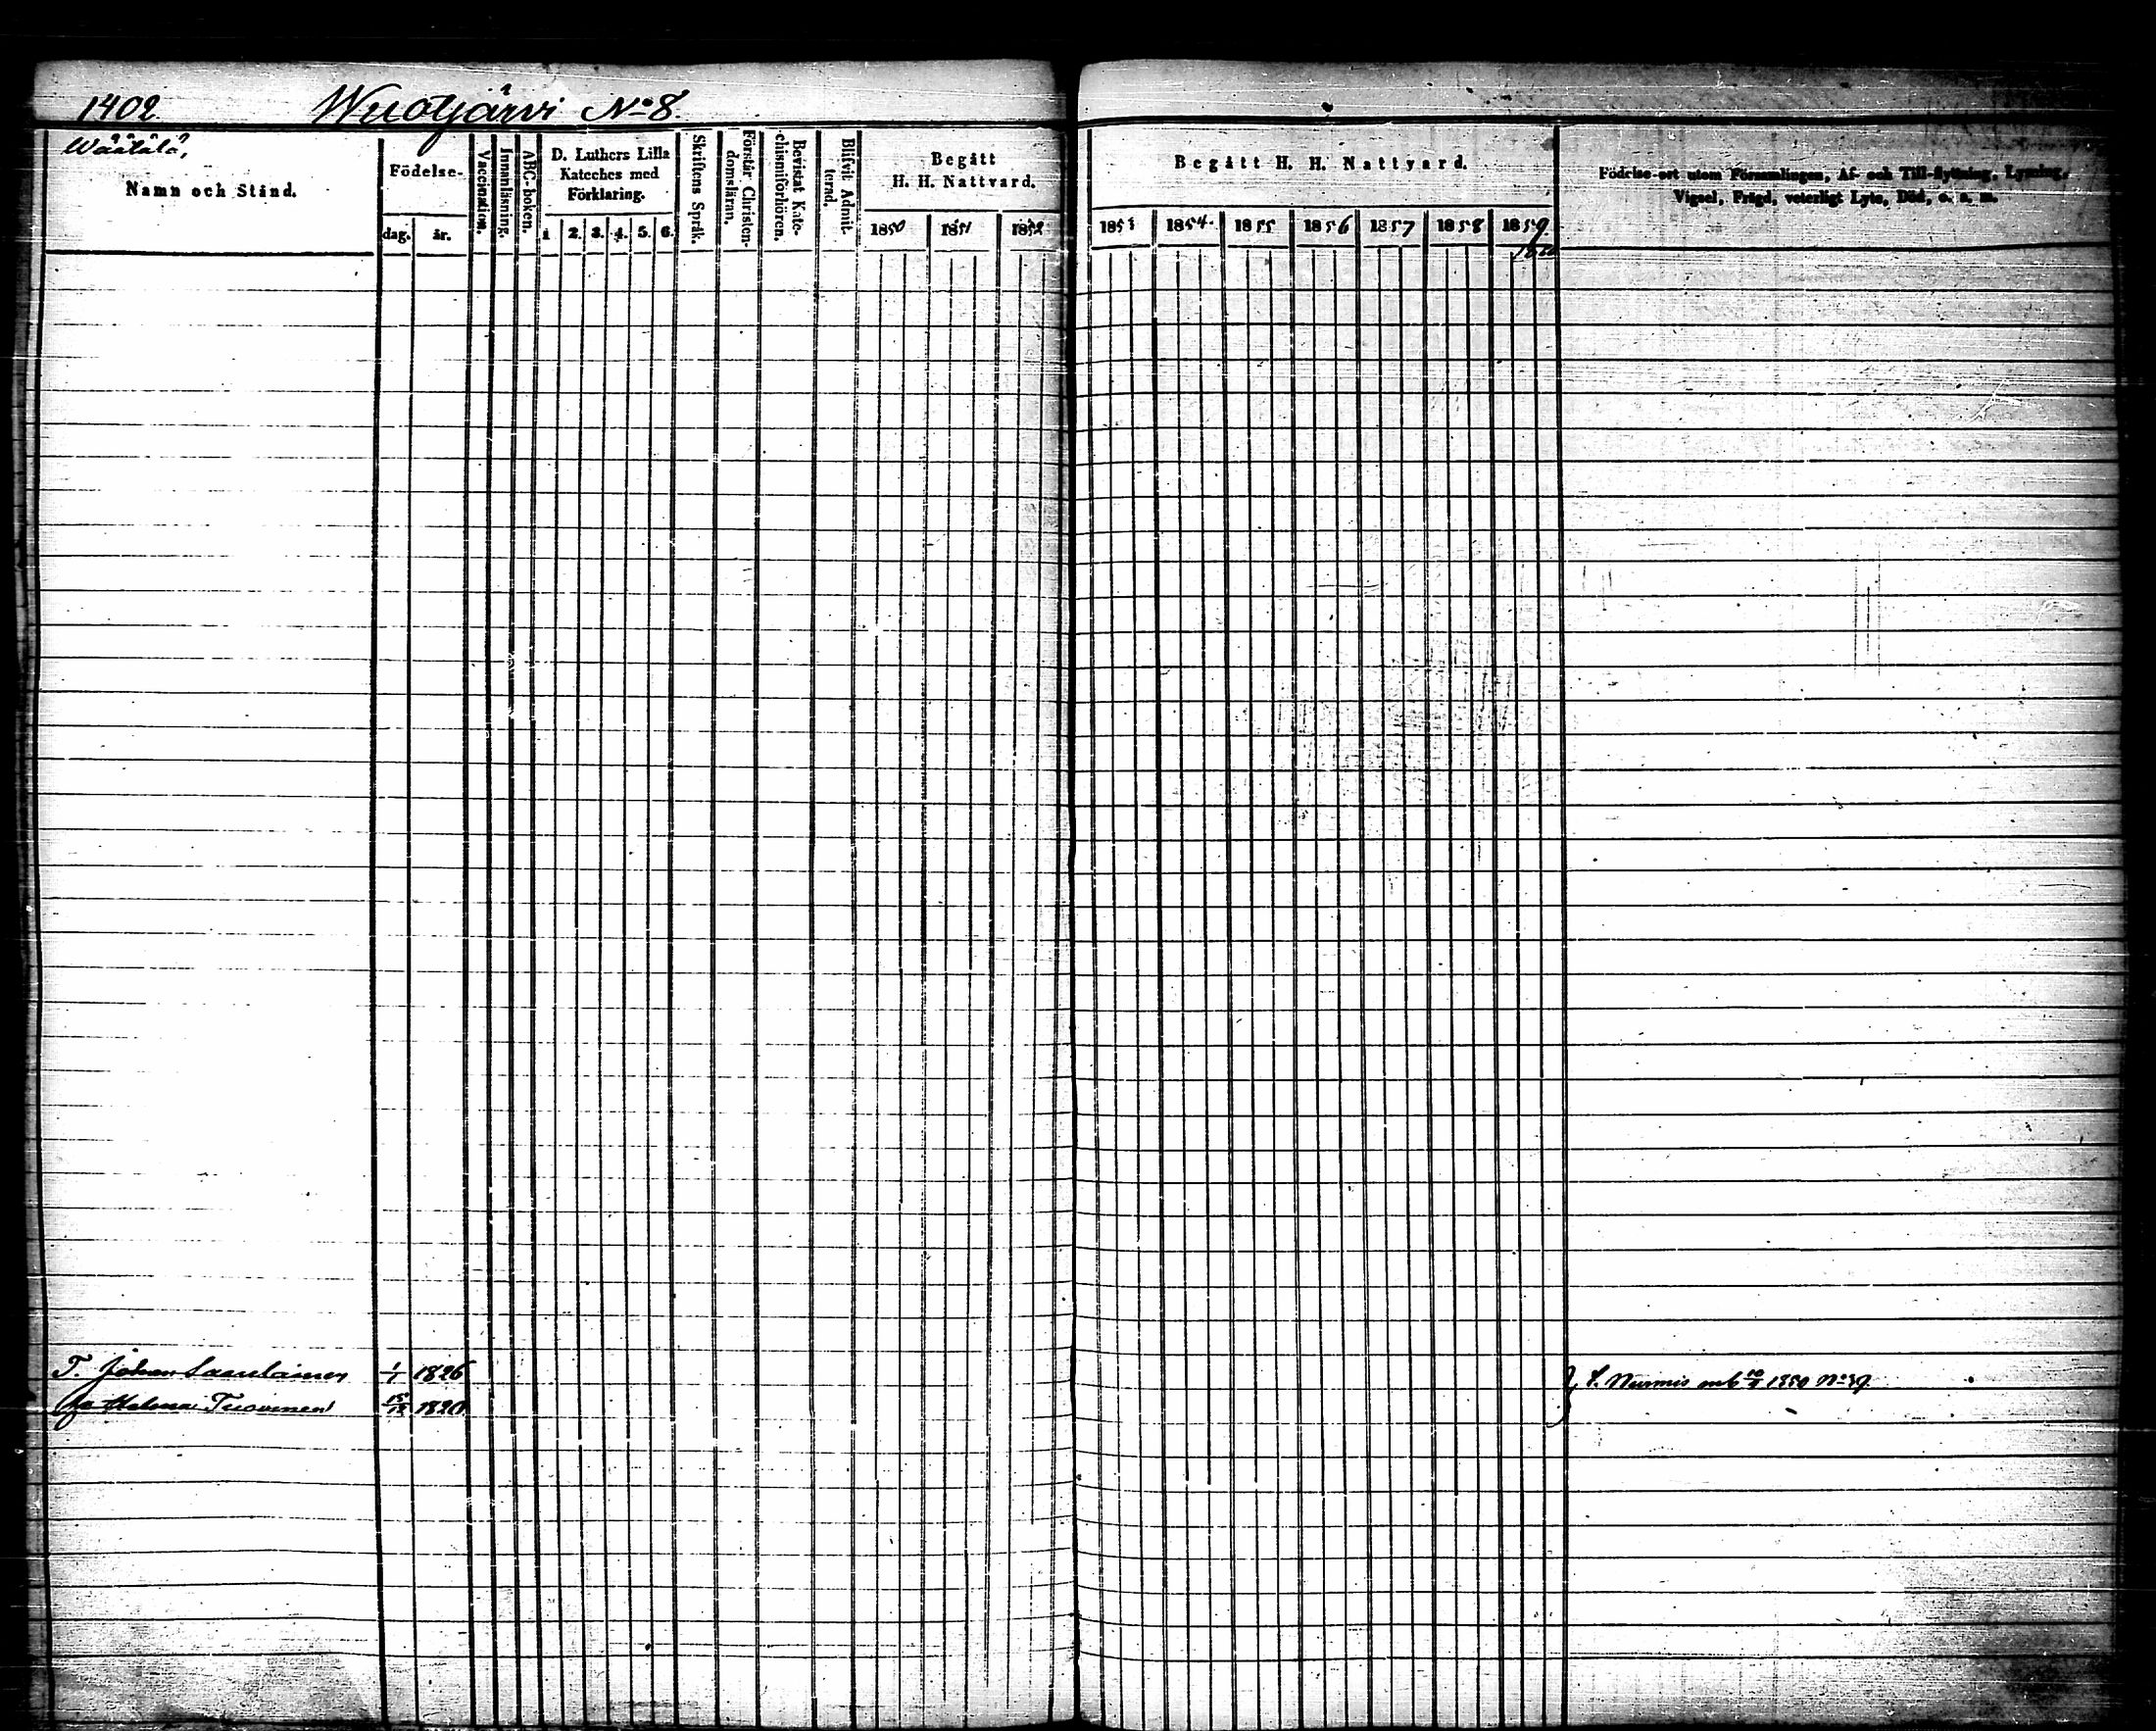 1402. Wuotjärvi No 8.
Wäätälä,
Namn och Stånd.
Födelse-
dag. år.
Vaccination.
Innanläsning.
ABC-boken.
D. Luthers Lilla
Kateches med
Förklaring.
1 2. 3. 4. 5. 6.
Skriftens Språk.
Förstår Christen-
domsläran.
Bevistat Kate-
chismiförhören.
Blifvit Admit-
terad.
Begått
H. H. Nattvard.
1850 1851 1852
Begått H. H. Nattvard.
1853 1854. 1855 1856 1857 1858 1859
1860
Födelse-ort utom Församlingen, Af- och Till-flyttning, Lysning,
Vigsel, Frägd, veterligt Lyte, Död, o. s. m.
T. Johan 1/1 1826
Helena Tuovinen 1820
Nurmis 1850 No 39.